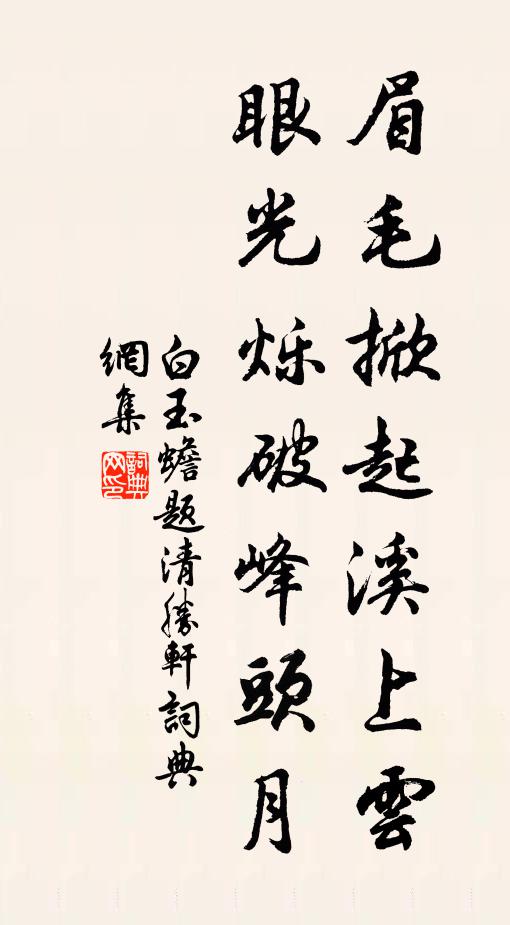 眉毛掀起溪上雲
眼光烁破峰頭月
白玉蟾题清勝軒詞典
網集
詞典
网印